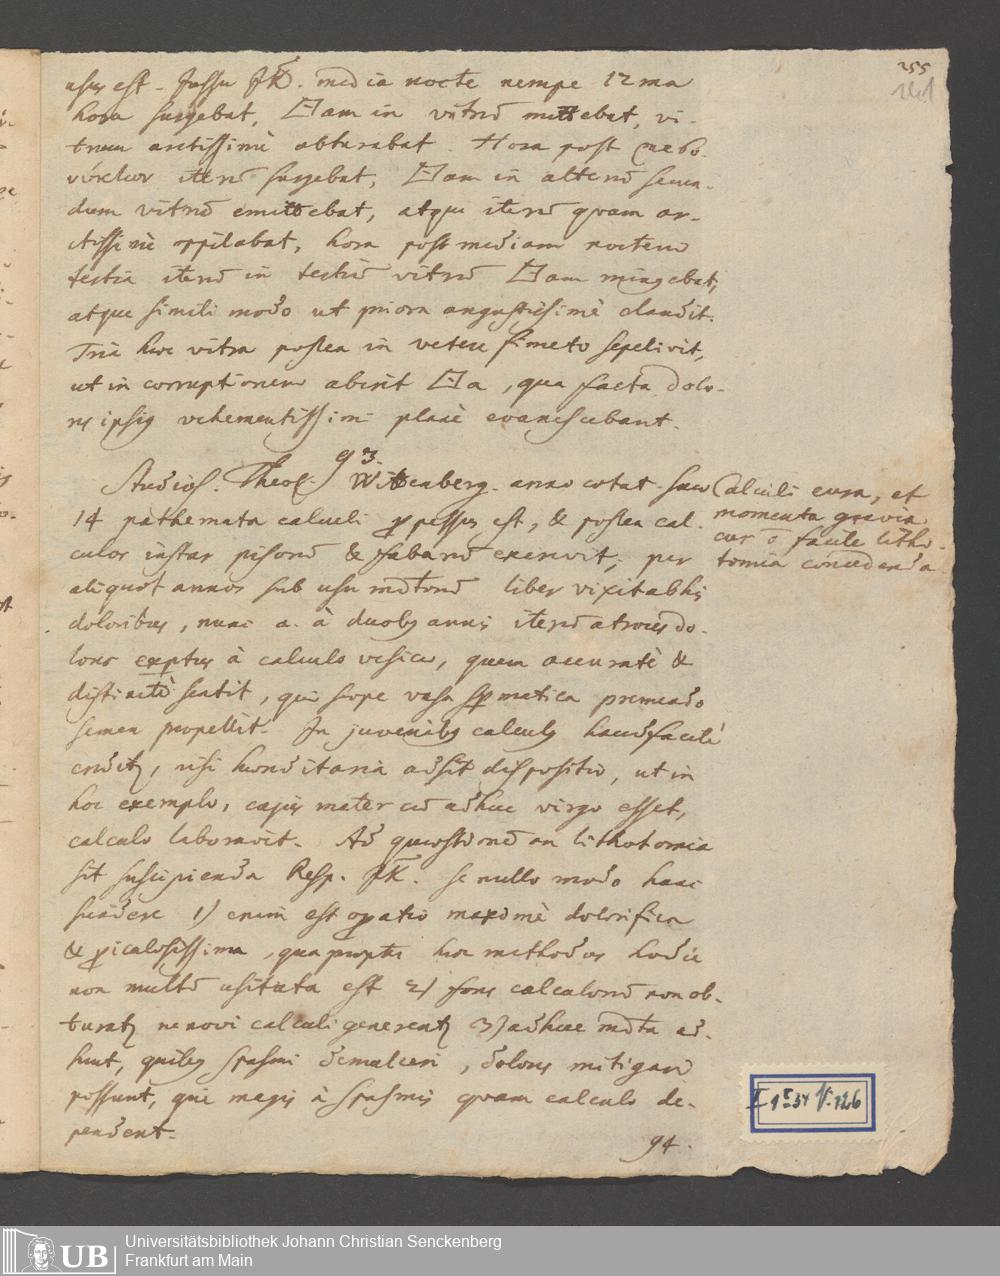 255
241
usus est. Jussu JK. media nocte nempe 12ma
hora surgebat, □am in vitrũ mittebat, vi-
trum arctissimè obturabat. Hora post μεσο-
νύκτιον iterũ surgebat, □am in alterũ secun-
dum vitrũ emittebat, atque iterũ quam ar-
ctissimè oppilabat, hora post mediam noctem
tertia iterũ in tertiũ vitrũ □am mingebat,
atque simili modo ut priora angustissimè claudit.
Tria haec vitra postea in vetere fimeto sepelivit,
ut in corruptionem abirit □a, qua facta dolo-
res ipsius vehementissimi planè evanescebant.
93.
Studios. Theol. Wittenberg. anno aetat. suae
14 pathemata calculi perpessus est, & postea cal-
culos instar pisorũ & fabarũ excrevit, per
aliquot annos sub usu mdtorũ liber vixit ab his
doloribus, nunc a. à duobus annis iterũ atroces do-
lores expertus à calculo vesicae, quem accuratè &
distinctè sentit, qui saepe vasa spermatica premendo
semen propellit. In juvenibus calculus haud facilè
creditur, nisi hereditaria adsit dispositio, ut in
hoc exemplo, cujus mater cũ adhuc virgo esset,
calculo laboravit. Ad quaestionẽ an lithotomia
sit suscipienda Resp. JK. se nullo modo hanc
suadere 1) enim est operatio maximè dolorifica
& periculosissima, quapropter haec methodus hodie
non multũ usitata est 2) fons calculorũ non ob-
turatur ne novi calculi generentur 3) adhuc mdta ad-
sunt, quibus spasmi demulceri, dolores mitigari
possunt, qui magis à spasmis quam calculo de-
pendent.
94.
Calculi cura, et
momenta gravia
cur õ facile litho-
tomia concedenda
UB Universitätsbibliothek Johann Christian Senckenberg
Frankfurt am Main